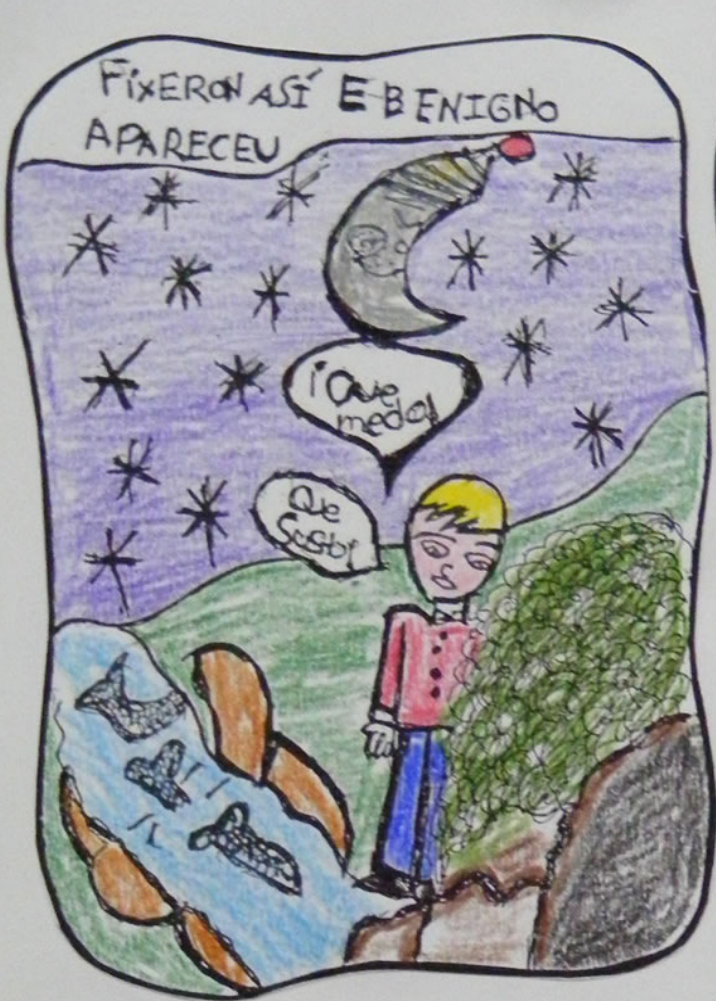 FIXERON ASÍ E BENIGNO
APARECEU
¡Que
medo!
Que
Susto!